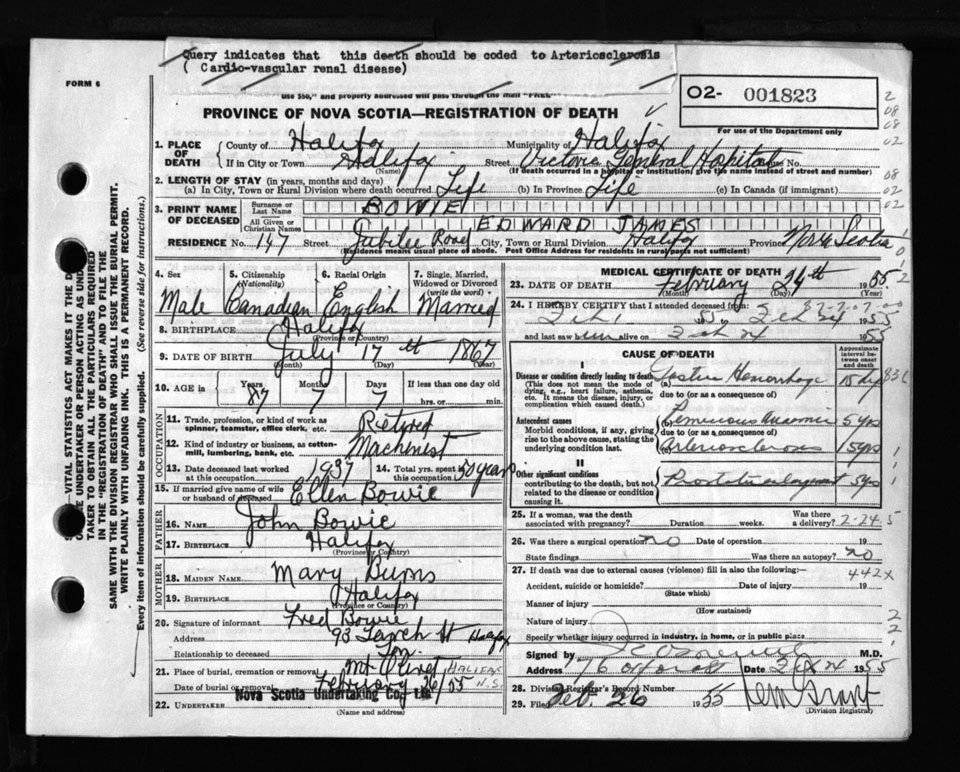 Query indicates that this death should be coded to Arteriosclerosis
( Cardio-vascular renal disease)
FORM 6
use $50," and properly addressed will pass through the mail "FREE"
O2- 001823
For use of the Department only
PROVINCE OF NOVA SCOTIA—REGISTRATION OF DEATH
1. PLACE OF DEATH
County of Halifax Municipality of Halifax
If in City or Town Halifax Street Victoria General Hospital House No.
(Name) (If death occurred in a hospital or institution, give the name instead of street and number)
2. LENGTH OF STAY (in years, months and days)
(a) In City, Town or Rural Division where death occurred Life (b) In Province Life (c) In Canada (if immigrant)
3. PRINT NAME OF DECEASED
Surname or Last Name BOWIE
All Given or Christian Names EDWARD JAMES
RESIDENCE No. 147 Street Jubilee Road City, Town or Rural Division Halifax Province Nova Scotia
(Residence means usual place of abode. Post Office Address for residents in rural parts not sufficient)
4. Sex Male
5. Citizenship (Nationality) Canadian
6. Racial Origin English
7. Single, Married, Widowed or Divorced (write the word) Married
8. BIRTHPLACE Halifax
(Province or Country)
9. DATE OF BIRTH July 17th 1867
(Month) (Day) (Year)
10. AGE in Years 87 Months 7 Days 7 If less than one day old hrs. or min.
OCCUPATION
11. Trade, profession, or kind of work as spinner, teamster, office clerk, etc. Retired
12. Kind of industry or business, as cotton-mill, lumbering, bank, etc. Machinist
13. Date deceased last worked at this occupation 1937
14. Total yrs. spent in this occupation 50 years
15. If married give name of wife or husband of deceased Ellen Bowie
FATHER
16. NAME John Bowie
17. BIRTHPLACE Halifax
(Province or Country)
MOTHER
18. MAIDEN NAME Mary Burns
19. BIRTHPLACE Halifax
(Province or Country)
20. Signature of informant Fred Bowie
Address 93 St Halifax
Relationship to deceased Son
21. Place of burial, cremation or removal Mt Olivet HALIFAX N.S.
Date of burial or removal February 26/55
22. UNDERTAKER Nova Scotia Undertaking Co., Ltd.
(Name and address)
MEDICAL CERTIFICATE OF DEATH
23. DATE OF DEATH February 24th 1955
(Month) (Day) (Year)
24. I HEREBY CERTIFY that I attended deceased from
Feb 1 55 to Feb 24 1955
and last saw him alive on Feb 24 1955
CAUSE OF DEATH
Approximate interval between onset and death
I
Disease or condition directly leading to death (a) Gastric Hemorrhage 15 dys
(This does not mean the mode of dying, e.g., heart failure, asthenia, etc. It means the disease, injury, or complication which caused death.)
due to (or as a consequence of)
Antecedent causes (b) Pernicious Anaemia 5 yrs
Morbid conditions, if any, giving rise to the above cause, stating the underlying condition last.
due to (or as a consequence of)
(c) Arteriosclerosis 15 yrs
II
Other significant conditions contributing to the death, but not related to the disease or condition causing it.
Prostatic enlargement 5 yrs
25. If a woman, was the death associated with pregnancy? Duration weeks. Was there a delivery? 2-24-5
26. Was there a surgical operation? no Date of operation 19
State findings Was there an autopsy? no
27. If death was due to external causes (violence) fill in also the following:—
442X
Accident, suicide or homicide? Date of injury 19
(State which)
Manner of injury
(How sustained)
Nature of injury
Specify whether injury occurred in industry, in home, or in public place
Signed by M.D.
Address 76 Oxford St Date Feb 24 1955
28. Division Registrar's Record Number
29. Filed Feb. 26 1955
(Division Registrar)
SAME WITH THE DIVISION REGISTRAR WHO SHALL ISSUE THE BURIAL PERMIT.
WRITE PLAINLY WITH UNFADING INK. THIS IS A PERMANENT RECORD.
Every item of information should be carefully supplied. (See reverse side for instructions.)
VITAL STATISTICS ACT MAKES IT THE D
UNDERTAKER OR PERSON ACTING AS UND
TAKER TO OBTAIN ALL THE PARTICULARS REQUIRED
IN THE "REGISTRATION OF DEATH" AND TO FILE THE